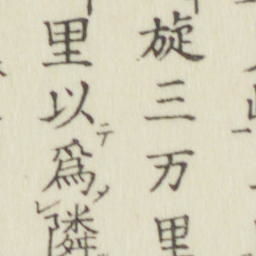 旋三万里
里以テ爲メレ隣